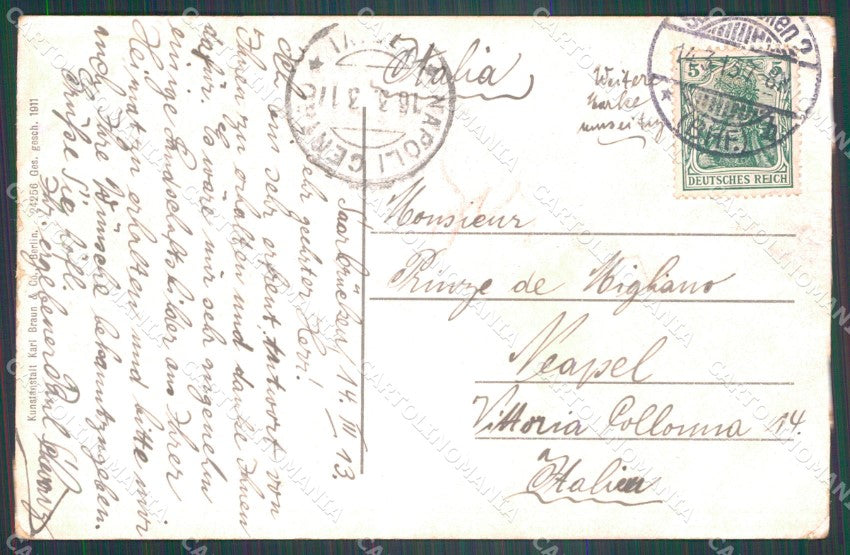 Italia
Weitere
Marke
umseitig
14.3.13.7-8N
BHF.
5 5
DEUTSCHES REICH
NAPOLI CENTRO
16.3
Monsieur
Prinze de Migliano
Neapel
Vittoria Collonna 14.
Italien
Saarbrücken, 14. III 13.
Sehr geehrter Herr!
Ich bin sehr erfreut Antwort von
Ihnen zu erhalten und danke Ihnen
dafür. Es wäre mir sehr angenehm
einige Landschaftsbilder aus Ihrer
Heimat zu erhalten und bitte mir
auch Ihre Wünsche bekanntzugeben.
Grüße Sie höfl.
Ihr ergebener Paul
Kunstanstalt Karl Braun & Co., Berlin. 24256 Ges. gesch. 1911
CARTOLINOMANIA